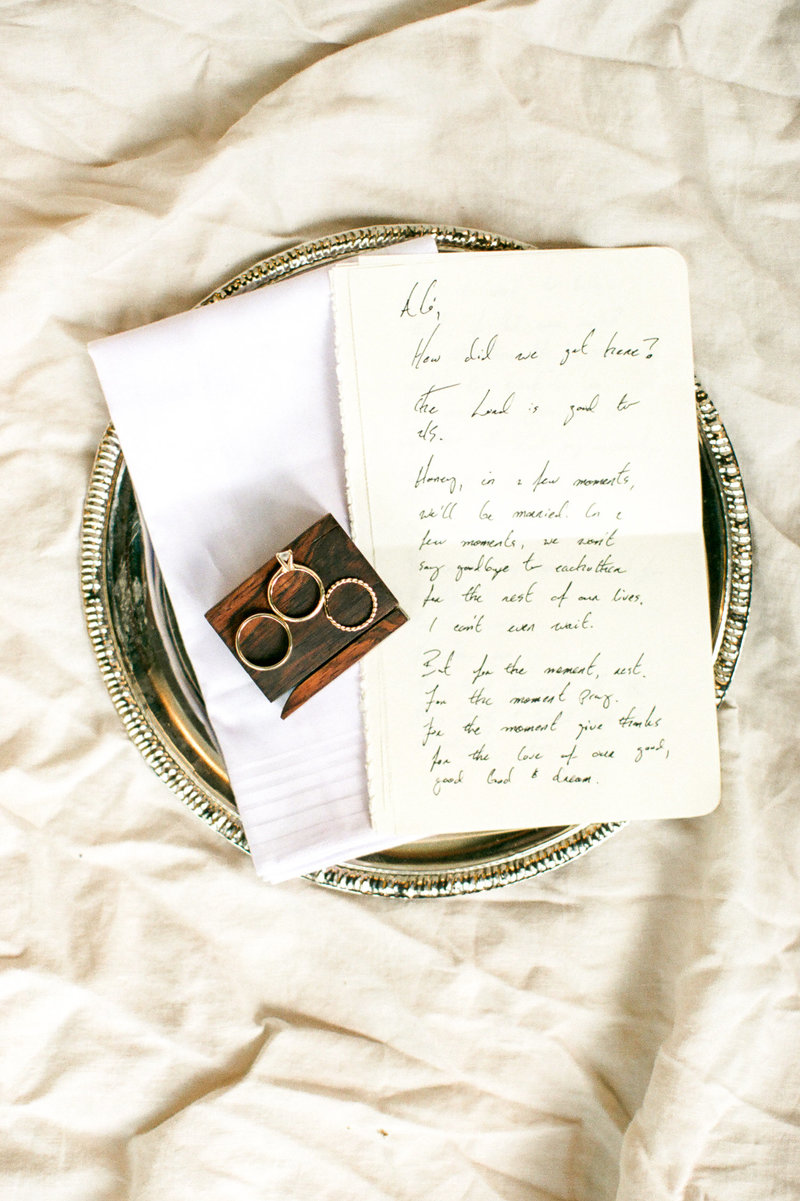 How did we get here?
The Lord is good to
us.
Honey, in a few moments,
we'll be married. In a
few moments, we won't
say goodbye to eachother
for the rest of our lives.
I can't even wait.
But for the moment, rest.
For the moment pray.
For the moment give thanks
for the love of our good,
good God & dream.